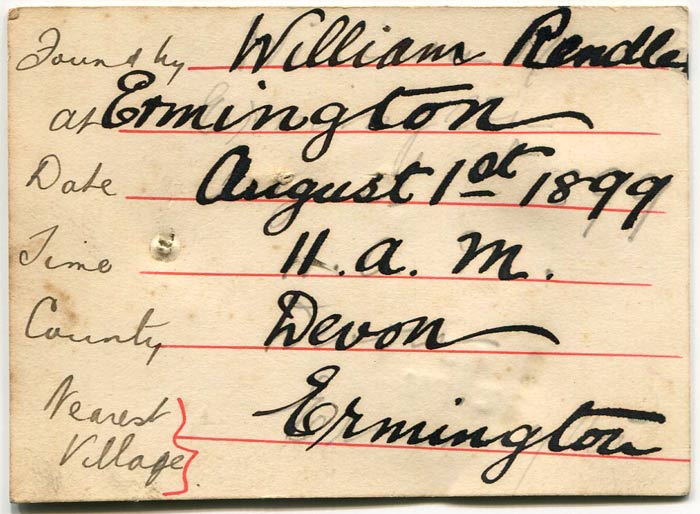 Found by William Rendle
at Ermington
Date August 1st 1899
Time 11. a. m.
County Devon
Nearest
Village Ermington